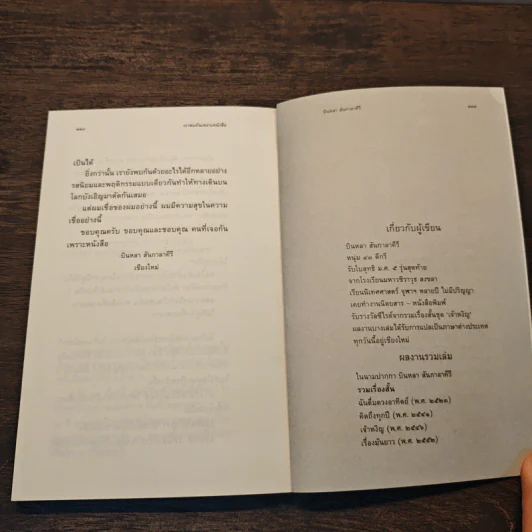 เราพบกันเพราะหนังสือ
เป็นได้
ยิ่งกว่านั้น เรายังพบกันด้วยอะไรได้อีกหลายอย่าง
รสนิยมและพฤติกรรมแบบเดียวกันทำให้ทางเดินบน
โลกยังเอิญมาตัดกันเสมอ
แต่ผมเชื่อของผมอย่างนี้ ผมมีความสุขในความ
เชื่ออย่างนี้
ขอบคุณครับ ขอบคุณและขอบคุณ คนที่เจอกัน
เพราะหนังสือ
บินหลา สันกาลาคีรี
เชียงใหม่
บินหลา สันกาลาคีรี
เกี่ยวกับผู้เขียน
บินหลา สันกาลาคีรี
หนุ่ม ๔๓ ดีกรี
รับใบสุทธิ ม.ศ. ๕ รุ่นสุดท้าย
จากโรงเรียนมหาวชิราวุธ สงขลา
เรียนนิเทศศาสตร์ จุฬาฯ หลายปี ไม่มีปริญญา
เคยทำงานนิตยสาร - หนังสือพิมพ์
รับรางวัลซีไรต์จากรวมเรื่องสั้นชุด 'เจ้าหงิญ'
ผลงานบางเล่มได้รับการแปลเป็นภาษาต่างประเทศ
ทุกวันนี้อยู่เชียงใหม่
ผลงานรวมเล่ม
ในนามปากกา บินหลา สันกาลาคีรี
รวมเรื่องสั้น
ฉันดื่มดวงอาทิตย์ (พ.ศ.
คิดถึงทุกปี (พ.ศ.
เจ้าหงิญ (พ.ศ. ๒๕๔๖)
เรื่องมันยาว (พ.ศ. ๒๕๕๒)